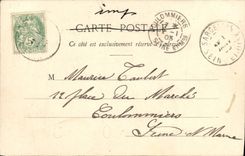 imp
CARTE POSTALE
Ce côté est exclusivement réservé à l'adresse
COULOMMIERS
M Maurice Taulet
12 place du Marché
Coulommiers
Seine et Marne